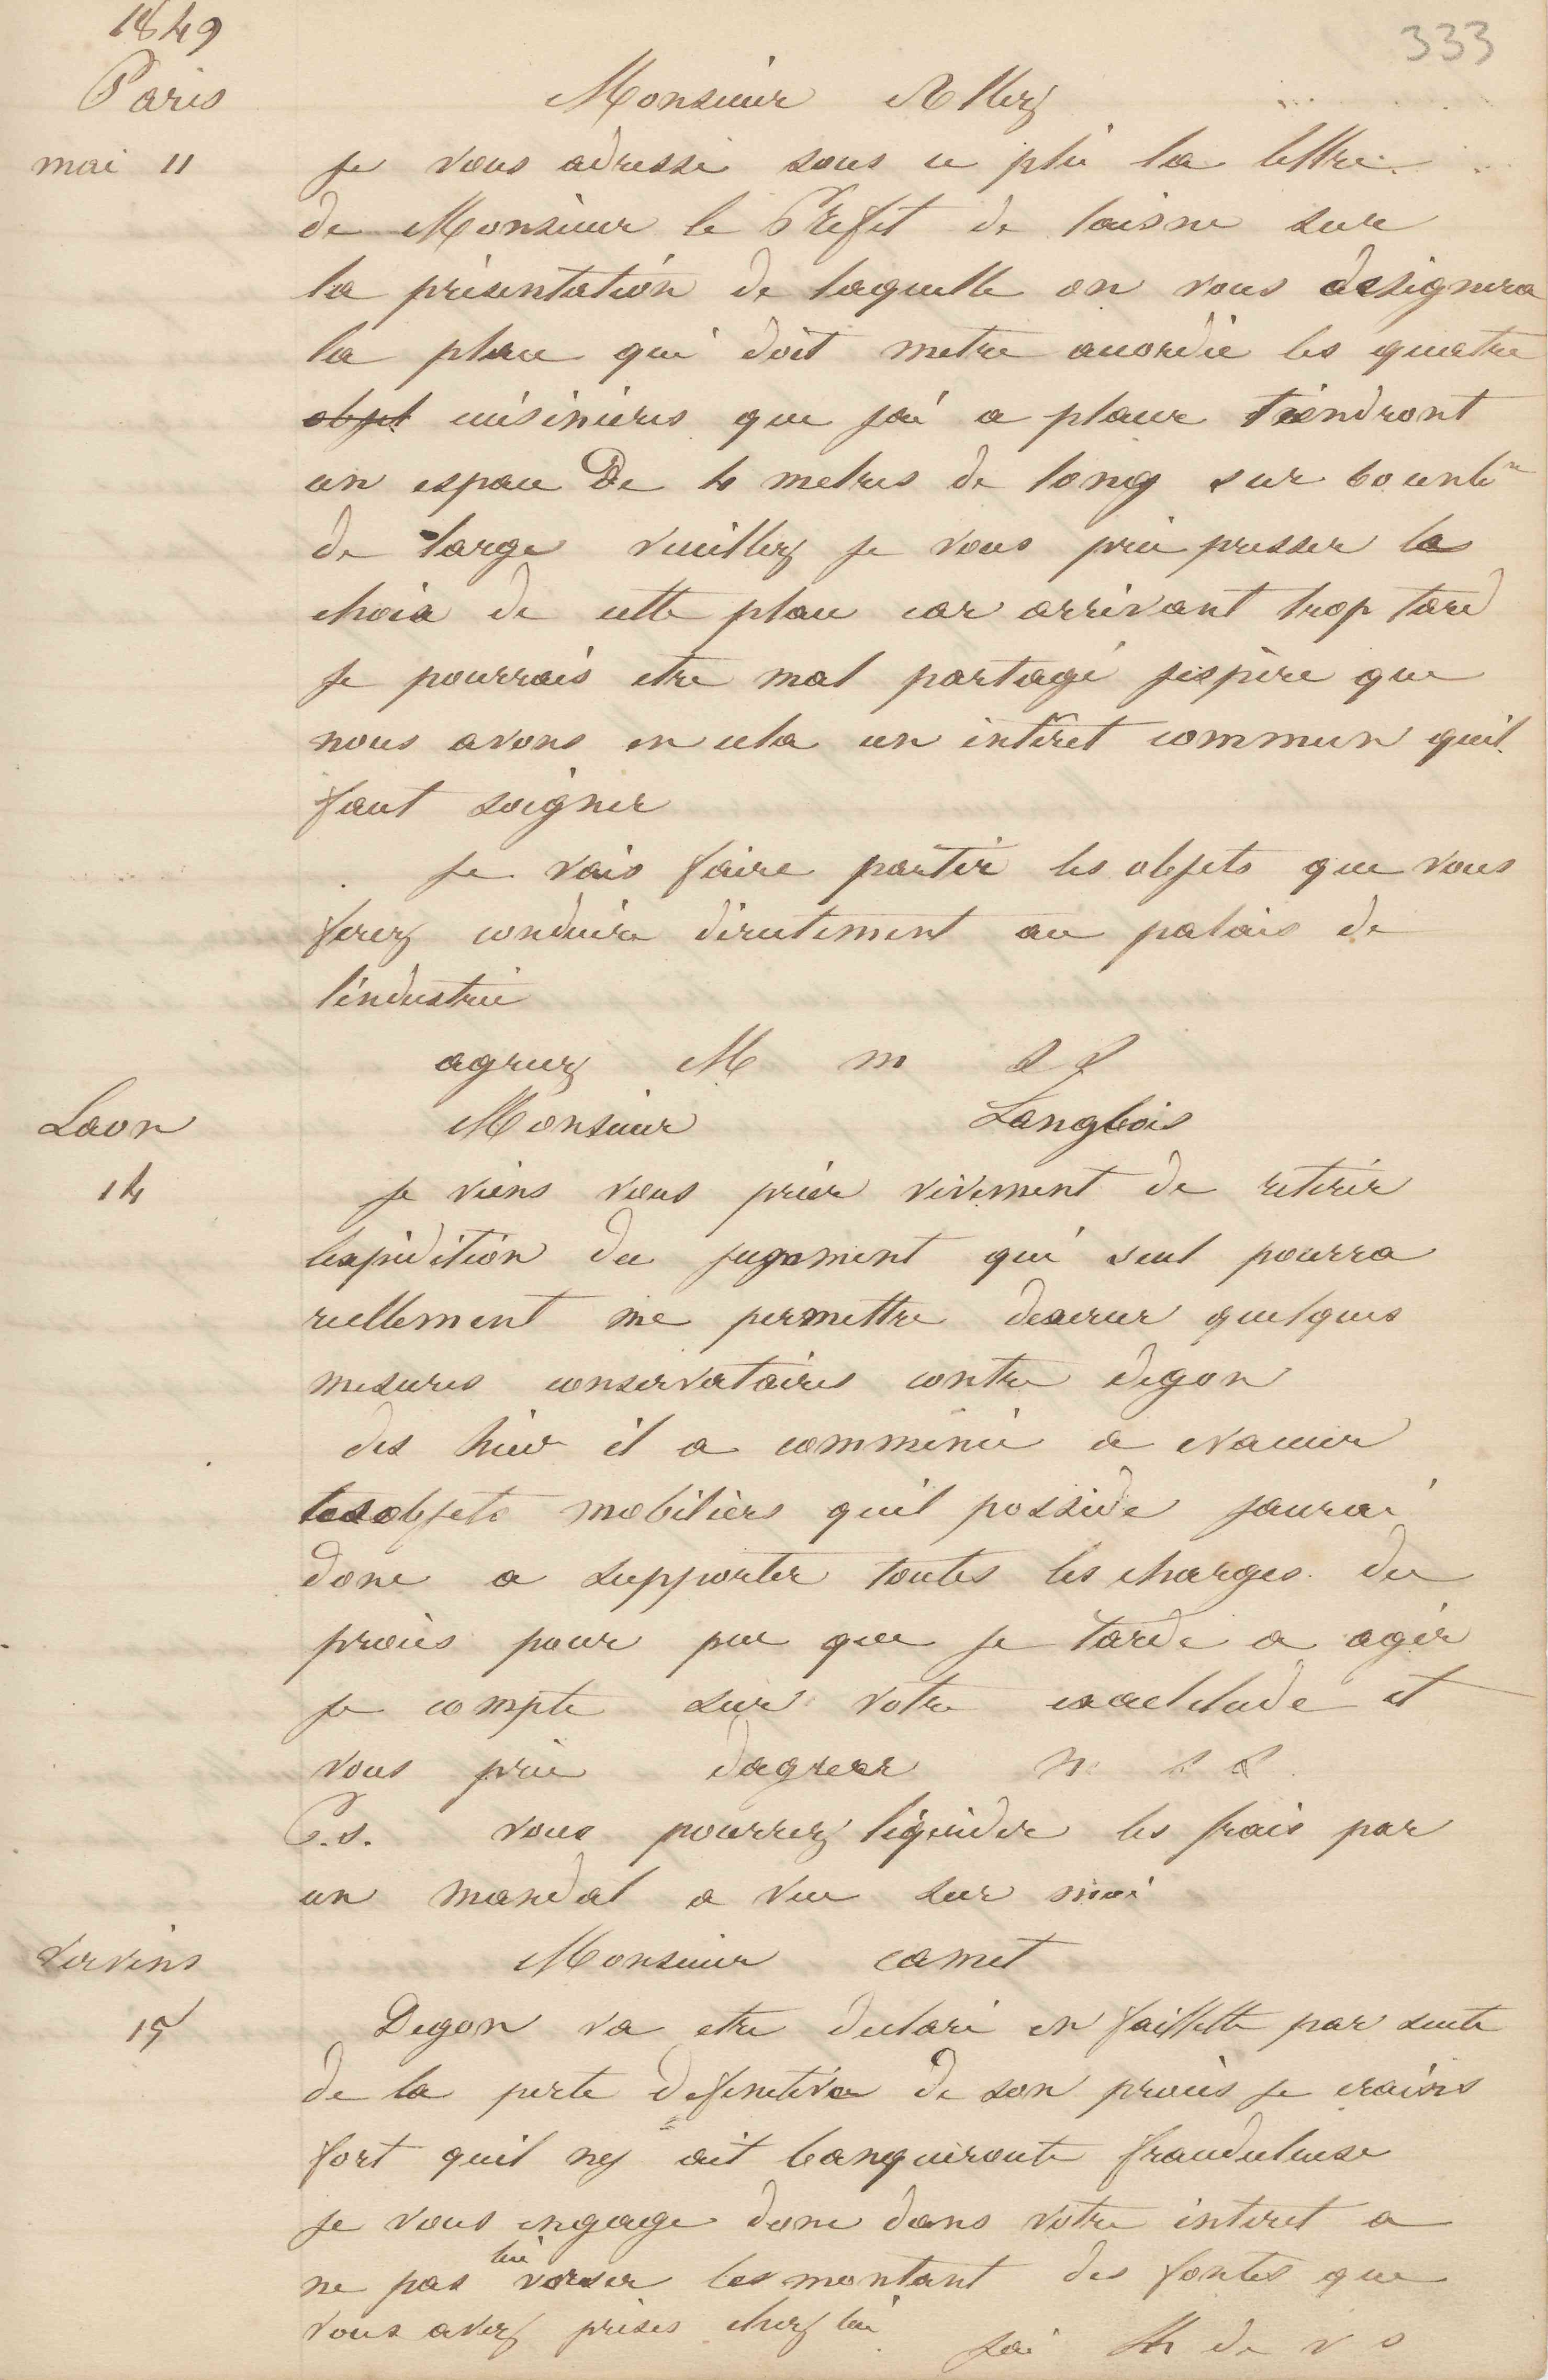 1849
333
Paris
Monsieur Allez
mai 11
je vous adresse sous ce pli la lettre
de Monsieur le Préfet de laisne sur
la présentation de laquelle on vous designera
la place qui doit metre accordée les quatre
objet cuisinieres que jai a placer tiendront
un espace De 4 metres de long sur 60 centi
de large veuillez je vous prie presser le
choix de cette place car arrivant trop tard
je pourrais etre mal partagé jespère que
nous avons en cela un intéret commun quil
faut soigner
je vais faire partir les objets que vous
ferez conduire directement au palais de
lindustrie
agreez M m s s
Laon
Monsieur Langlois
14
je viens vous prier vivement de retirer
lexpédition du jugement qui seul pourra
reellement me permettre dexercer quelques
mesures conservatoires contre degon
des hier il a commencé a evacuer
les objets mobiliers quil possède jaurai
donc a supporter toutes les charges du
procès pour peu que je tarde a agir
je compte sur votre exactitude et
vous prie dagreer m s s
P.S. vous pourrez liquider les frais par
un mandat a vue sur moi
Vervins
Monsieur camet
15
Degon va etre declaré en faillitte par suite
de la perte definitive de son procès je crains
fort quil ny ait banqueroute frauduleuse
je vous engage donc dans votre interet a
ne pas lui verser les montant des fontes que
vous avez prises chez lui
jai lh de v s